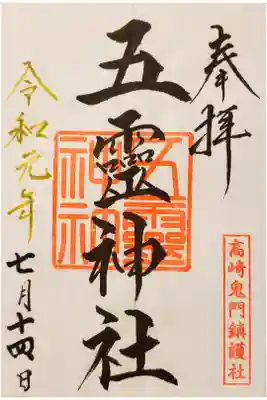 奉拝
五靈神社
五靈神社
高崎鬼門鎮護社
令和元年
七月十四日